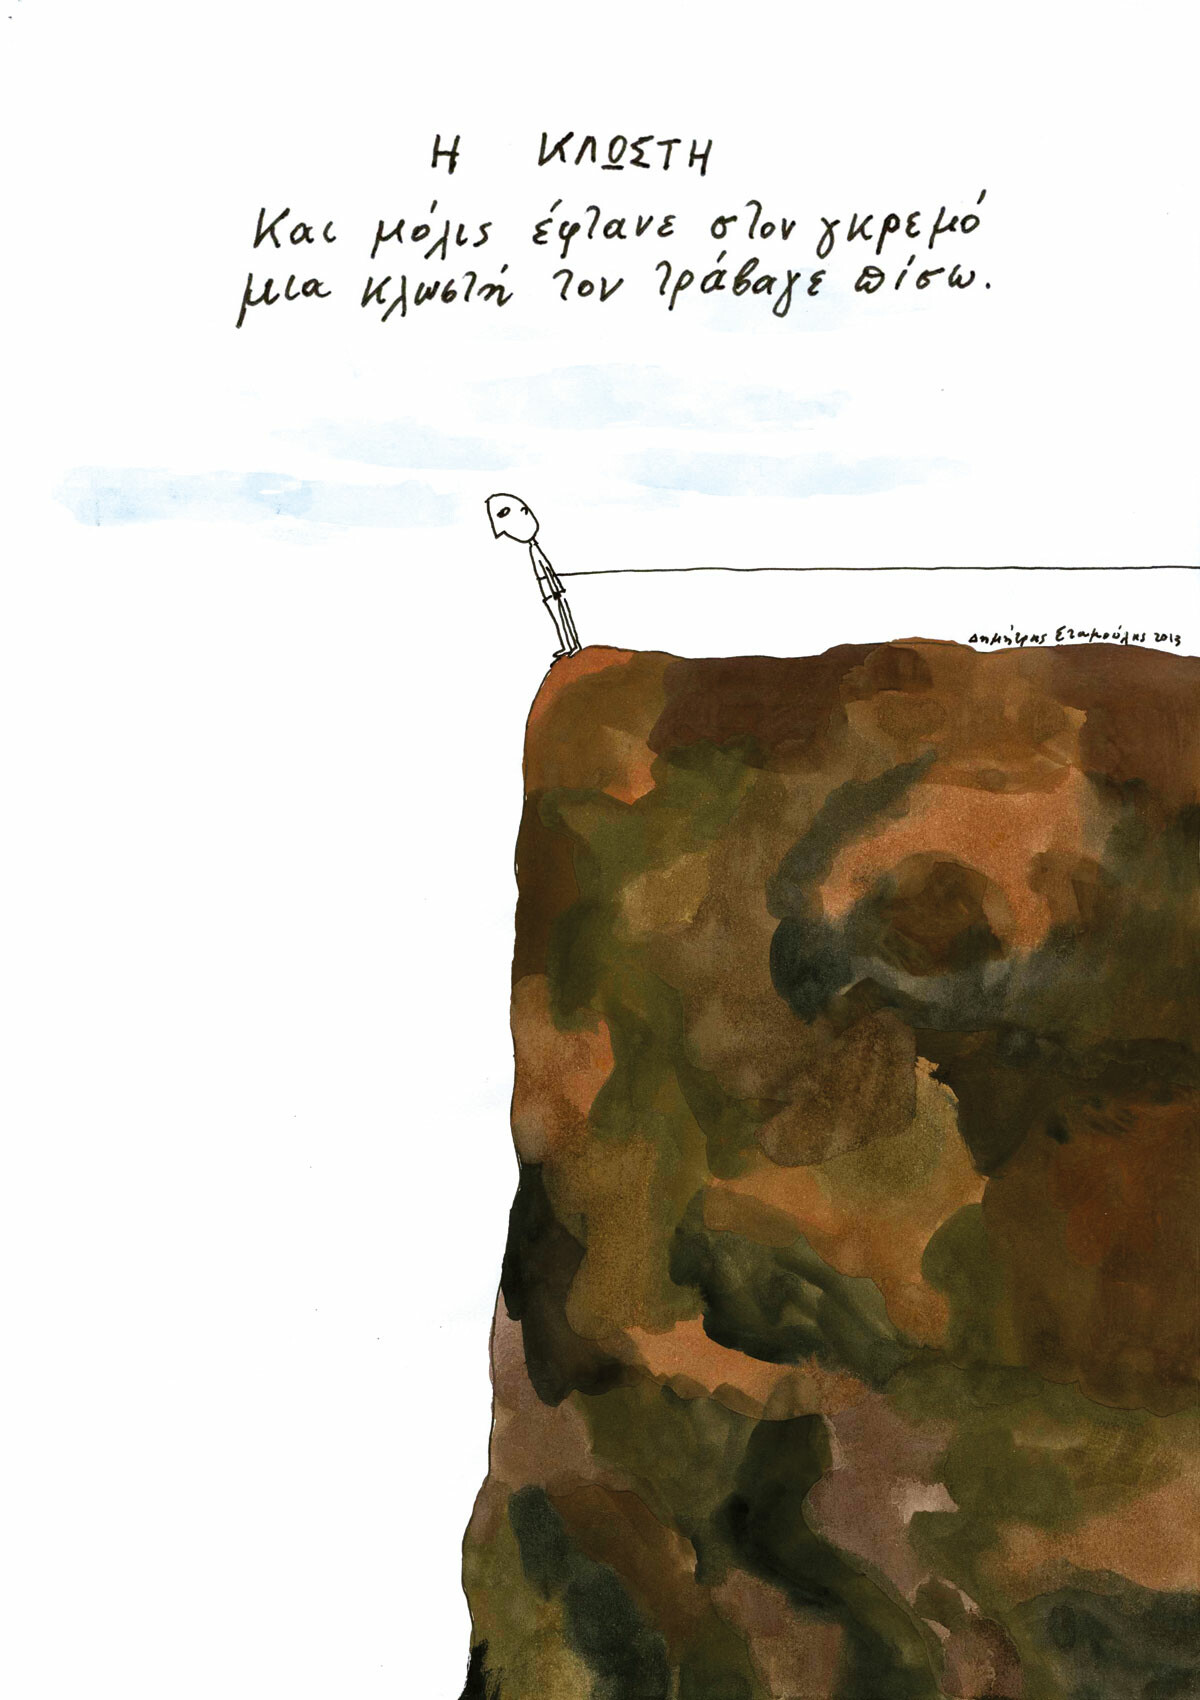 Η ΚΛΩΣΤΗ
Και μόλις έφτανε στον γκρεμό
μια κλωστή τον τράβαγε πίσω.
Δημήτρης Σταμούλης 2013